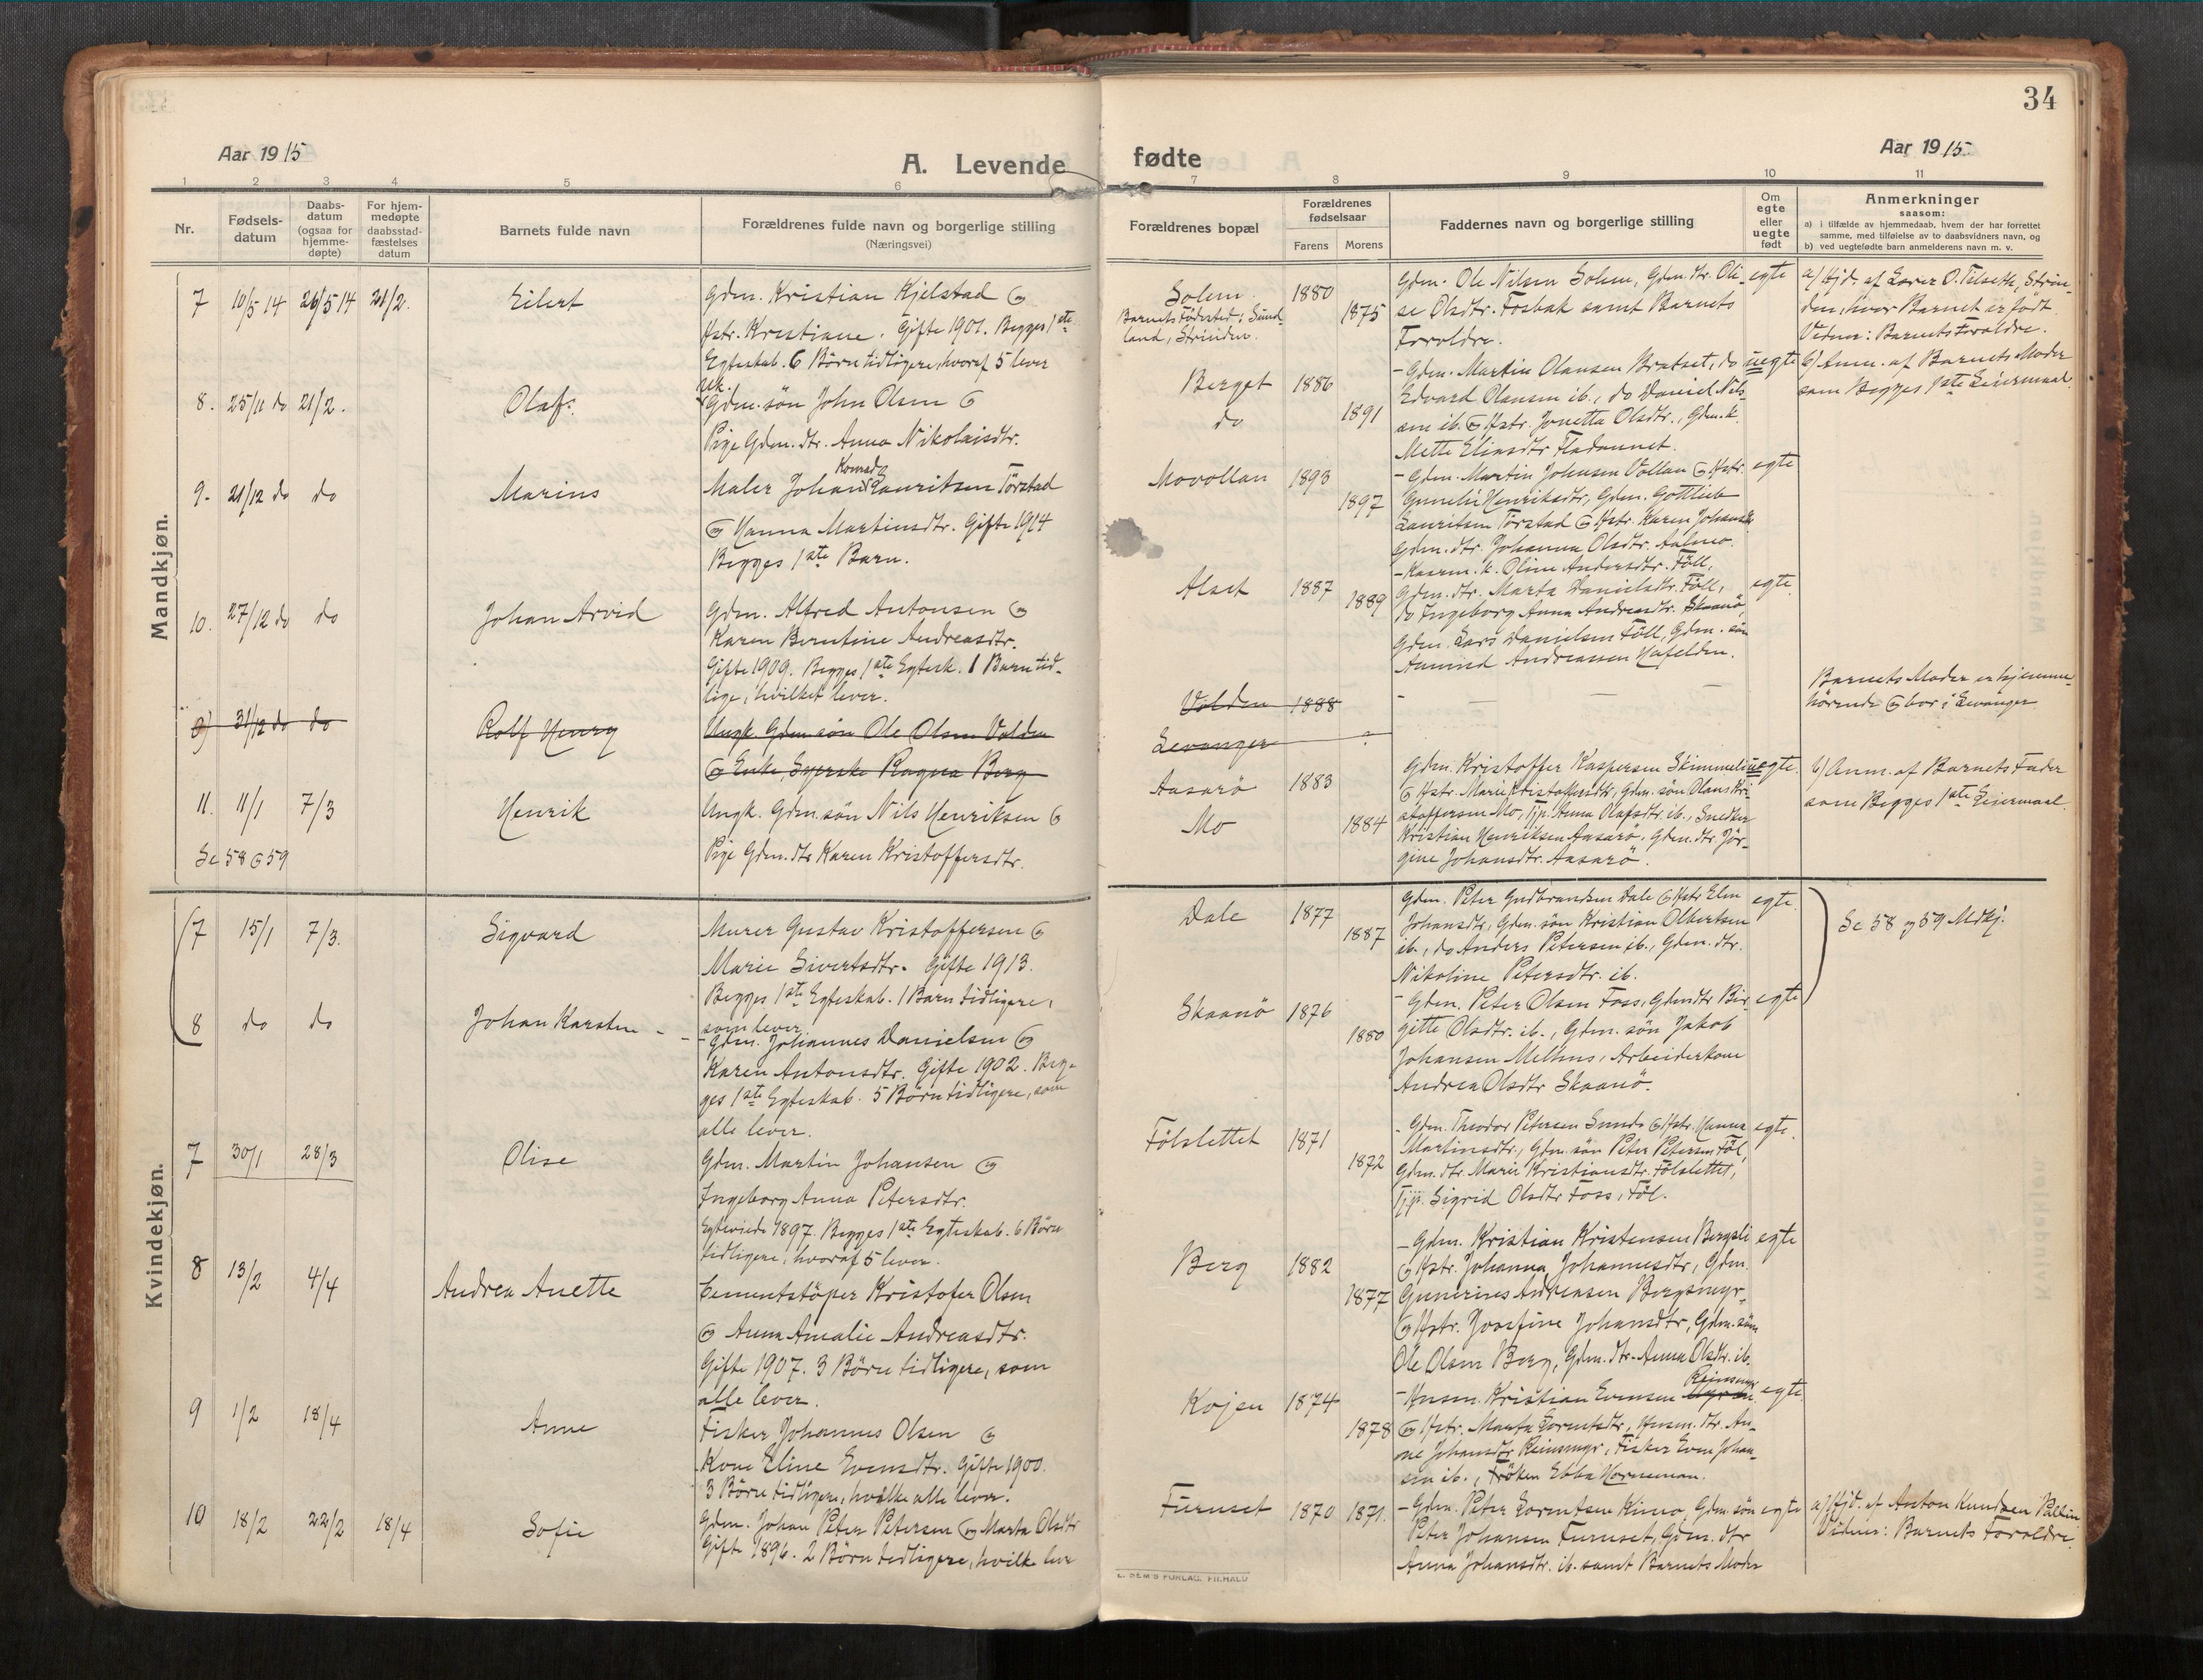 34
Aar 1915
A. Levende fødte
Aar 1915
1 2 3 4 5 6 7 8 9 10 11
Nr.
Fødsels-
datum
Daabs-
datum
(ogsaa for
hjemme-
døpte)
For hjem-
medøpte
daabsstad-
fæstelses
datum
Barnets fulde navn
Forældrenes fulde navn og borgerlige stilling
(Næringsvei)
Forældrenes bopæl
Forældrenes
fødselsaar
Farens Morens
Faddernes navn og borgerlige stilling
Om
egte
eller
uegte
født
Anmerkninger
saasom:
a) i tilfælde av hjemmedaab, hvem der har forrettet
samme, med tilføielse av to daabsvidners navn, og
b) ved uegtefødte barn anmelderens navn m. v.
Mandkjøn.
7 10/5 14 26/5 14 21/2. Eilert
Gdm. Kristian Kjelstad og
Hstr. Kristiane. Gifte 1901. Begges 1ste
Egteskab. 6 Børn tidligere, hvoraf 5 lever
Solem 1880
Barnets Fødested: Sund-
land, Strinden.
1875
Gdm. Ole Nilsen Solem, Gdm. dtr. Oli-
se Olsdtr. Fosbak samt Barnets
Forældre.
egte
a) Hjd. af Lærer O. Tilseth, Strin-
den, hvor Barnet er født
Vidner: Barnets Forældre.
8. 25/11 do 21/2. Olaf.
Gdm. søn John Olsen og
Pige Gdm. dtr. Anna Nikolaisdtr.
Berget 1886
do 1891
- Gdm. Martin Olausen Bratset, do
Edvard Olausen ib., do Daniel Nils-
sen ib. og Hstr. Jonetta Olsdtr., Gdm. k.
Mette Eliasdtr. Fladaunet.
uegte
b) Anm. af Barnets Moder
som Begges 1ste Leiermaal.
9. 21/12 do do Marius
Konrad
Maler Johan Lauritsen Tørstad
og Hanna Martinsdtr. Gifte 1914
Begges 1ste Barn.
Movollan 1893
1897
- Gdm. Martin Johnsen Vollan og Hstr.
Gunelie Henriksdtr., Gdm. Gottlieb
Lauritsen Tørstad og Hstr. Karen Johansdtr.
Gdm. dtr. Johanna Olsdtr. Aalmo.
egte
10. 27/12 do do Johan Arvid
Gdm. Alfred Antonsen og
Karen Berntine Andreasdtr.
Gifte 1909. Begges 1ste Egtesk. 1 Barn tid-
lige, hvilket lever.
Alset 1887
1889
- Kaarm. k. Oline Andersdtr. Föll,
Gdm. dtr. Marta Danielsdtr. Föll,
do Ingeborg Anna Andreasdtr. Skaanö,
Gdm. Lars Danielsen Föll, Gdm. søn
Amund Andreassen Hafelden.
egte.
9) 31/12 do do Rolf Henry
Ungk. Gdm. søn Ole Olsen Volden
og Enke, Syerske Ragna Berg
Volden 1888
Levanger ?
Barnets Moder er hjemme-
hørende og bor i Levanger
11. 11/1 7/3 Henrik
Se 58 og 59
Ungk. Gdm. søn Nils Henriksen og
Pige Gdm. dtr Karen Kristoffersdtr.
Aasarö 1883
Mo 1884
Gdm. Kristoffer Kaspersen Skimmeli
og Hstr. Marie Kristoffersdtr, Gdm. søn Olaus Kri-
stoffersen Mo, Tjp. Anna Olafsdtr. ib., Snedker
Kristian Henriksen Aasarö, Gdm. dtr. Jör-
gine Johansdtr. Aasarö.
uegte.
b) Anm. af Barnets Fader
som Begges 1ste Leiermaal.
Kvindekjøn.
7 15/1 7/3. Sigvard
Murer Gustav Kristoffersen og
Marie Sivertsdtr. Gifte 1913.
Begges 1ste Egteskab. 1 Barn tidligere,
som lever.
Dale 1877
1887
Gdm. Peter Gudbrandsen Dale og Hstr Elen
Johansdtr., Gdm. søn Kristian Olbertsen
ib., do Anders Petersen ib., Gdm. dtr.
Nikoline Petersdtr. ib.
egte.
Se 58 og 59 Mdkj.
8 do do Johan Karsten -
- Gdm. Johannes Danielsen og
Karen Antonsdtr. Gifte 1902. Beg-
ges 1ste Egteskab. 5 Børn tidligere, som
alle lever.
Skaanö 1876
1880
- Gdm. Peter Olsen Foss, Gdmdtr Bir-
gitte Olsdtr. ib., Gdm. søn Jakob
Johansen Melhus, Arbeiderkone
Andrea Olsdtr Skaanö.
egte
7 30/1 28/3 Olise
Gdm. Martin Johansen og
Ingeborg Anna Petersdtr.
Egteviede 1897. Begges 1ste Egteskab. 6 Børn
tidligere, hvoraf 5 lever.
Fölslettet 1871
1872
- Gdm. Theodor Petersen Sunds og Hstr. Hanna
Martinsdtr., Gdm. søn Peter Petersen Föl,
Gdm. dtr. Marie Kristiansdtr. Fölslettet,
Tjp. Sigrid Olsdtr Foss, Föl.
egte.
8 13/2 4/4 Andrea Anette
Cementstöper Kristofer Olsen
og Anna Amalie Andreasdtr.
Gifte 1907. 3 Børn tidligere, som
alle lever.
Berg 1882
1877
- Gdm. Kristian Kristensen Bergsli
og Hstr. Johanna Johannesdtr, Gdm.
Gunerius Andreasen Bergsmyr
og Hstr. Josefine Johansdtr, Gdm. søn
Ole Olsen Berg, Gdm. dtr. Anna Olsdtr. ib.
egte
9 1/2 18/4 Anne
Fisker Johannes Olsen og
Kone Eline Evensdtr. Gifte 1900.
3 Børn tidligere, hvilke alle lever.
Kojen 1874
1878
Reinsmyr
- Husm. Kristian Evensen
og Hstr. Marta Lorentsdtr, Husm. dtr. An-
ne Johansdtr Reinsmyr, Fisker Even Johan-
sen ib., Frøken Ebba Horneman.
egte.
10 18/2 22/2 18/4 Sofie
Gdm. Johan Peter Petersen og Marta Olsdtr
Gifte 1896. 2 Børn tidligere, hvilke lever
Furuset 1870 1871.
- Gdm. Peter Lorentsen Kimo, Gdm. søn
Peter Johansen Furuset, Gdm. dtr
Anna Johansdtr. ib. samt Barnets Moder
egte
a) Hjd. af Anton Knudsen
Vidner: Barnets Forældre.
E. SEM'S FORLAG, FR.HALD